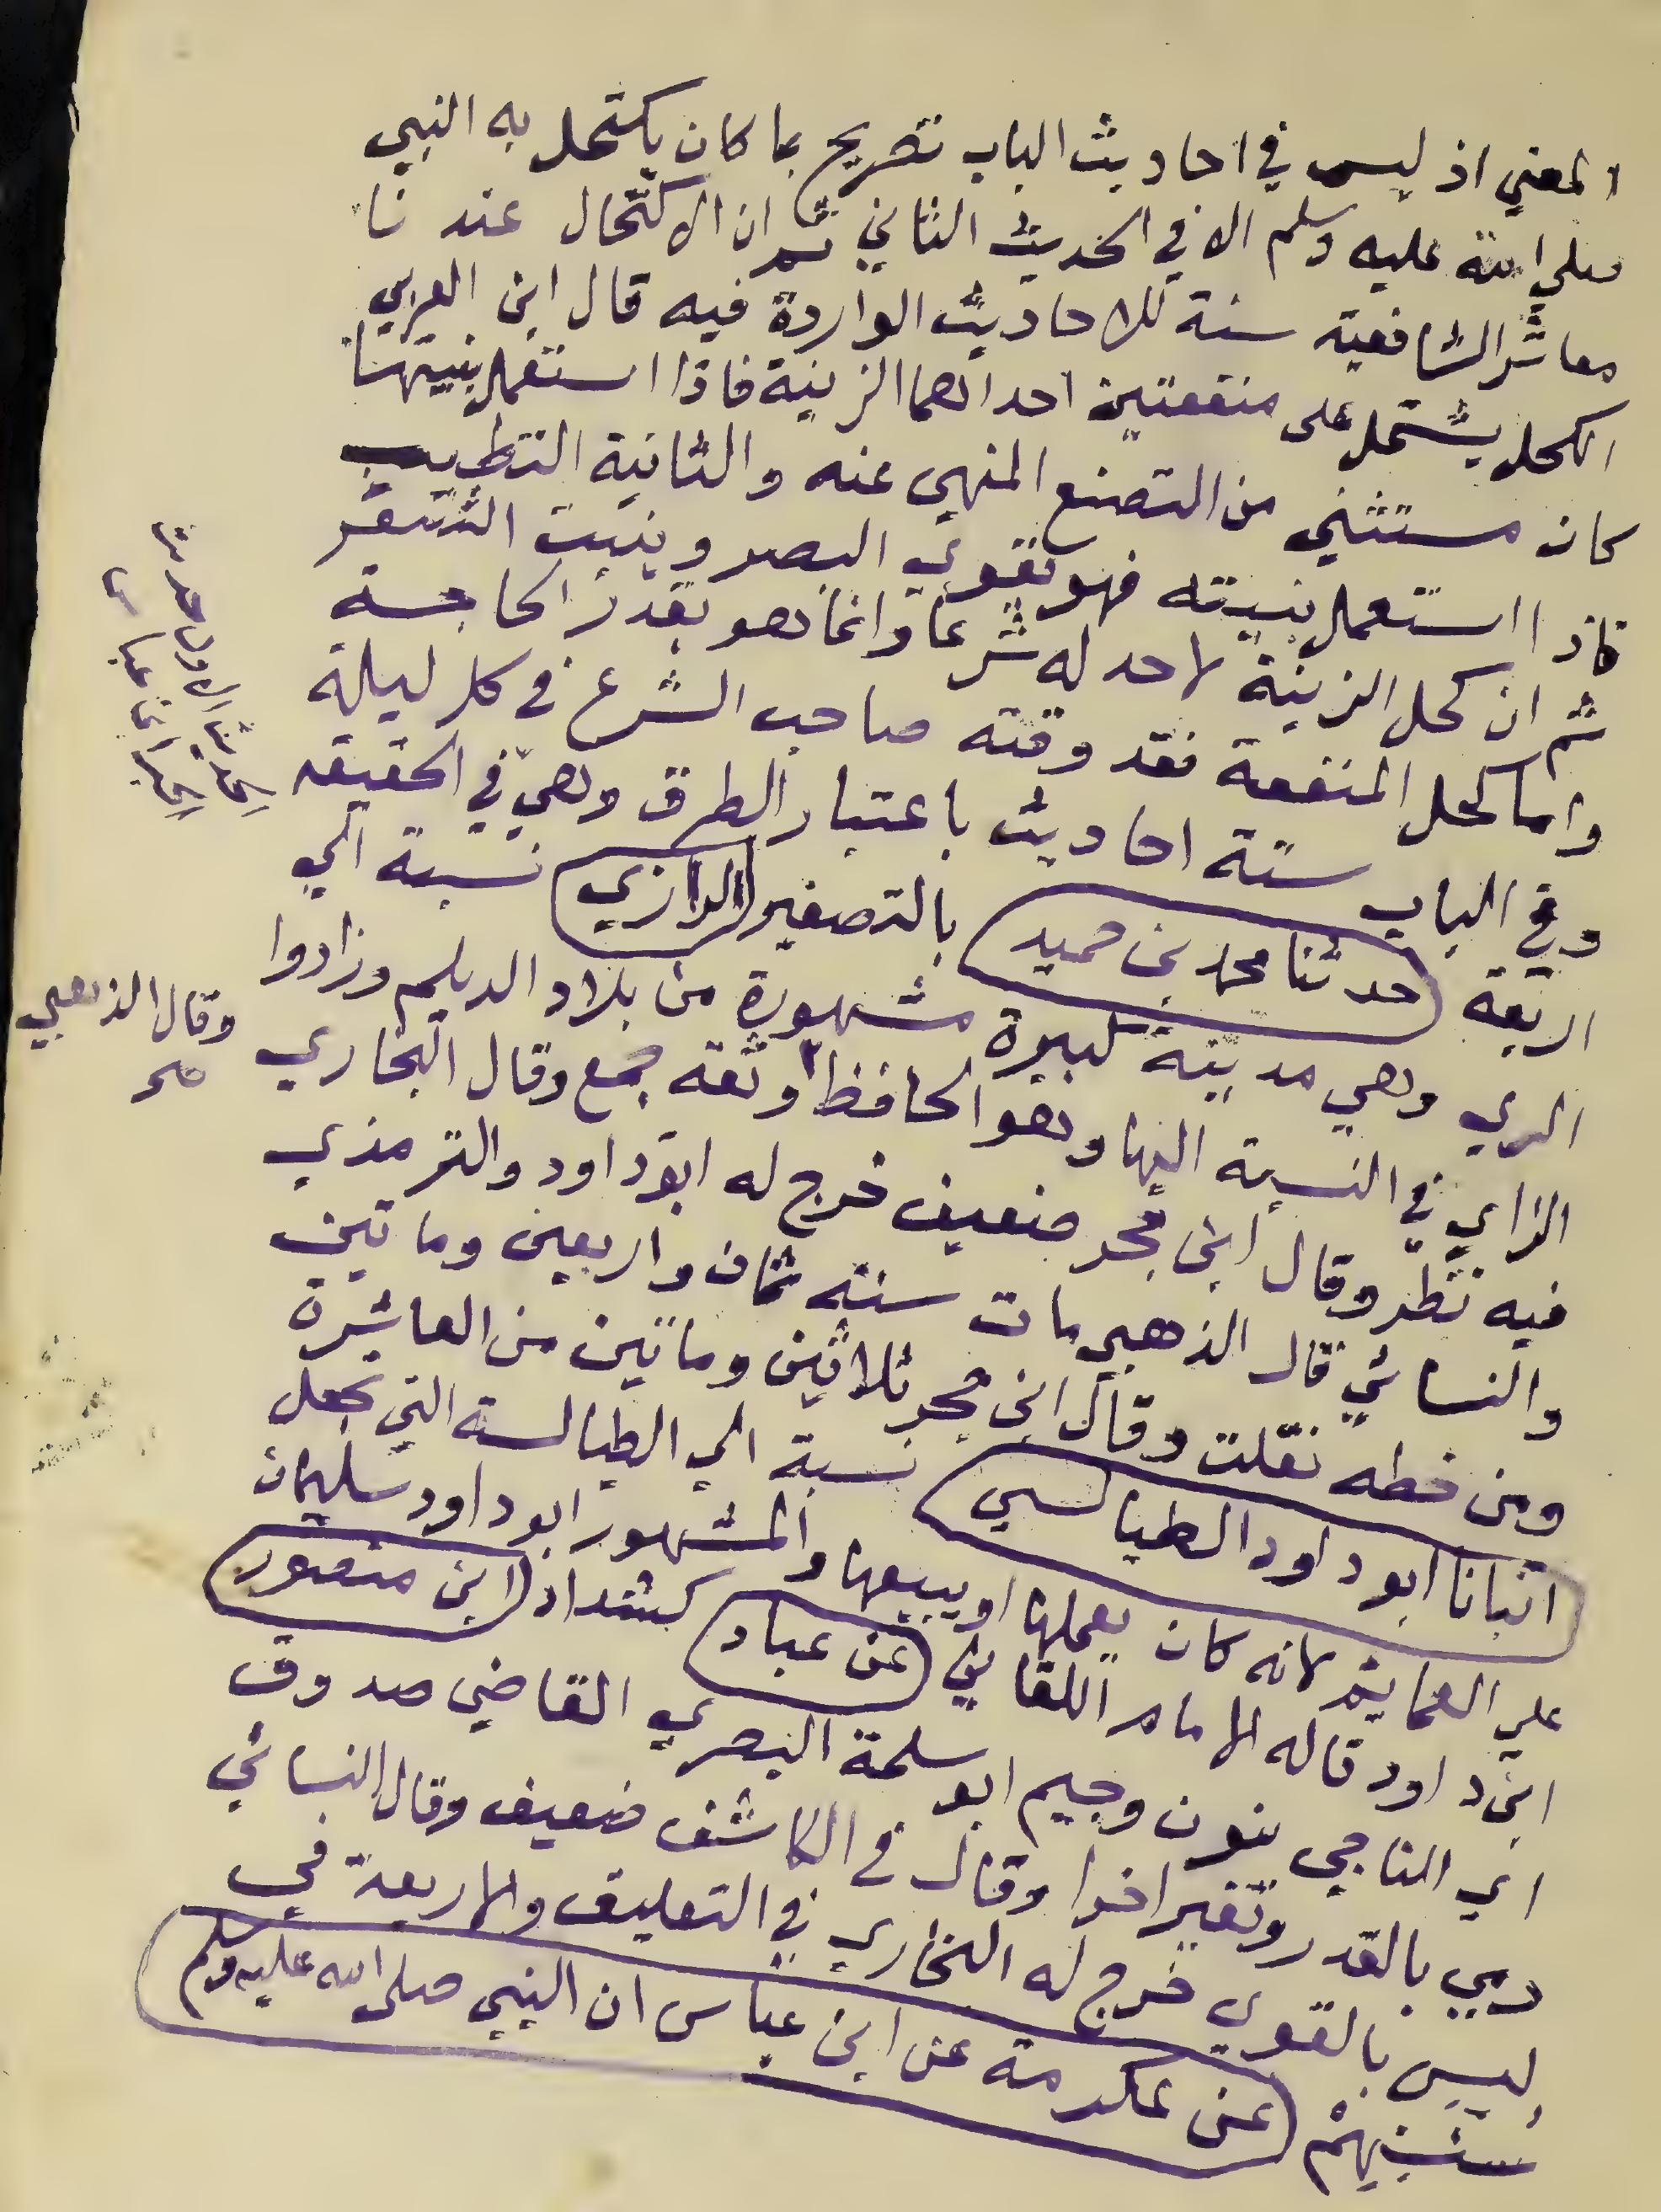 المعني اذ ليس في احاديث الباب تصريح بما كان يكتحل به النبي
صلي الله عليه وسلم الا في الحديث الثاني ثم ان الاكتحال عندنا
معاشر الشافعية سنة للاحاديث الواردة فيه قال ابن العربي
الكحل يشتمل على منفعتين احداهما الزينة فاذا استعمل بنيتها
كان مستثني من التصنع المنهي عنه والثانية التطبيب
فاذا استعمل بنيته فهو يقوي البصر وينبت الشعر
ثم ان كحل الزينة لا حد له شرعا وانما هو بقدر الحاجة
واما كحل المنفعة فقد وقته صاحب الشرع في كل ليلة
وفي الباب ستة احاديث باعتبار الطرق وهي في الحقيقه
اربعة حدثنا محمد بن حميد بالتصغير الرازي نسبة الي
الري وهي مدينة كبيرة مشهورة من بلاد الديلم وزادوا
الزاي في النسبة اليها وهو الحافظ وثقه جمع وقال البخاري
فيه نظر وقال ابن حجر ضعيف خرج له ابو داود والترمذي
والنسائي قال الذهبي مات سنة ثمان واربعين وماتين
ومن خطه نقلت وقال ابن حجر ثلاثين وماتين من العاشرة
انبانا ابو داود الطيالسي نسبة الي الطيالسة التي تجعل
علي العمايم لانه كان يعملها او يبيعها والمشهور ابو داود سليمان
ابن داود قاله الامام اللقاني عن عباد كشداد ابن منصور
اي الناجي بنون وجيم ابو سلمة البصري القاضي صدوق
رمي بالقدر وتغير اخرا وقال في الكاشف ضعيف وقال النسائي
ليس بالقوي خرج له البخاري في التعليق والاربعة في
سننهم عن عكرمة عن ابن عباس ان النبي صلى الله عليه وسلم
الحديث الاول حديث
الحبر ابن عباس
وقال الذهبي
صح